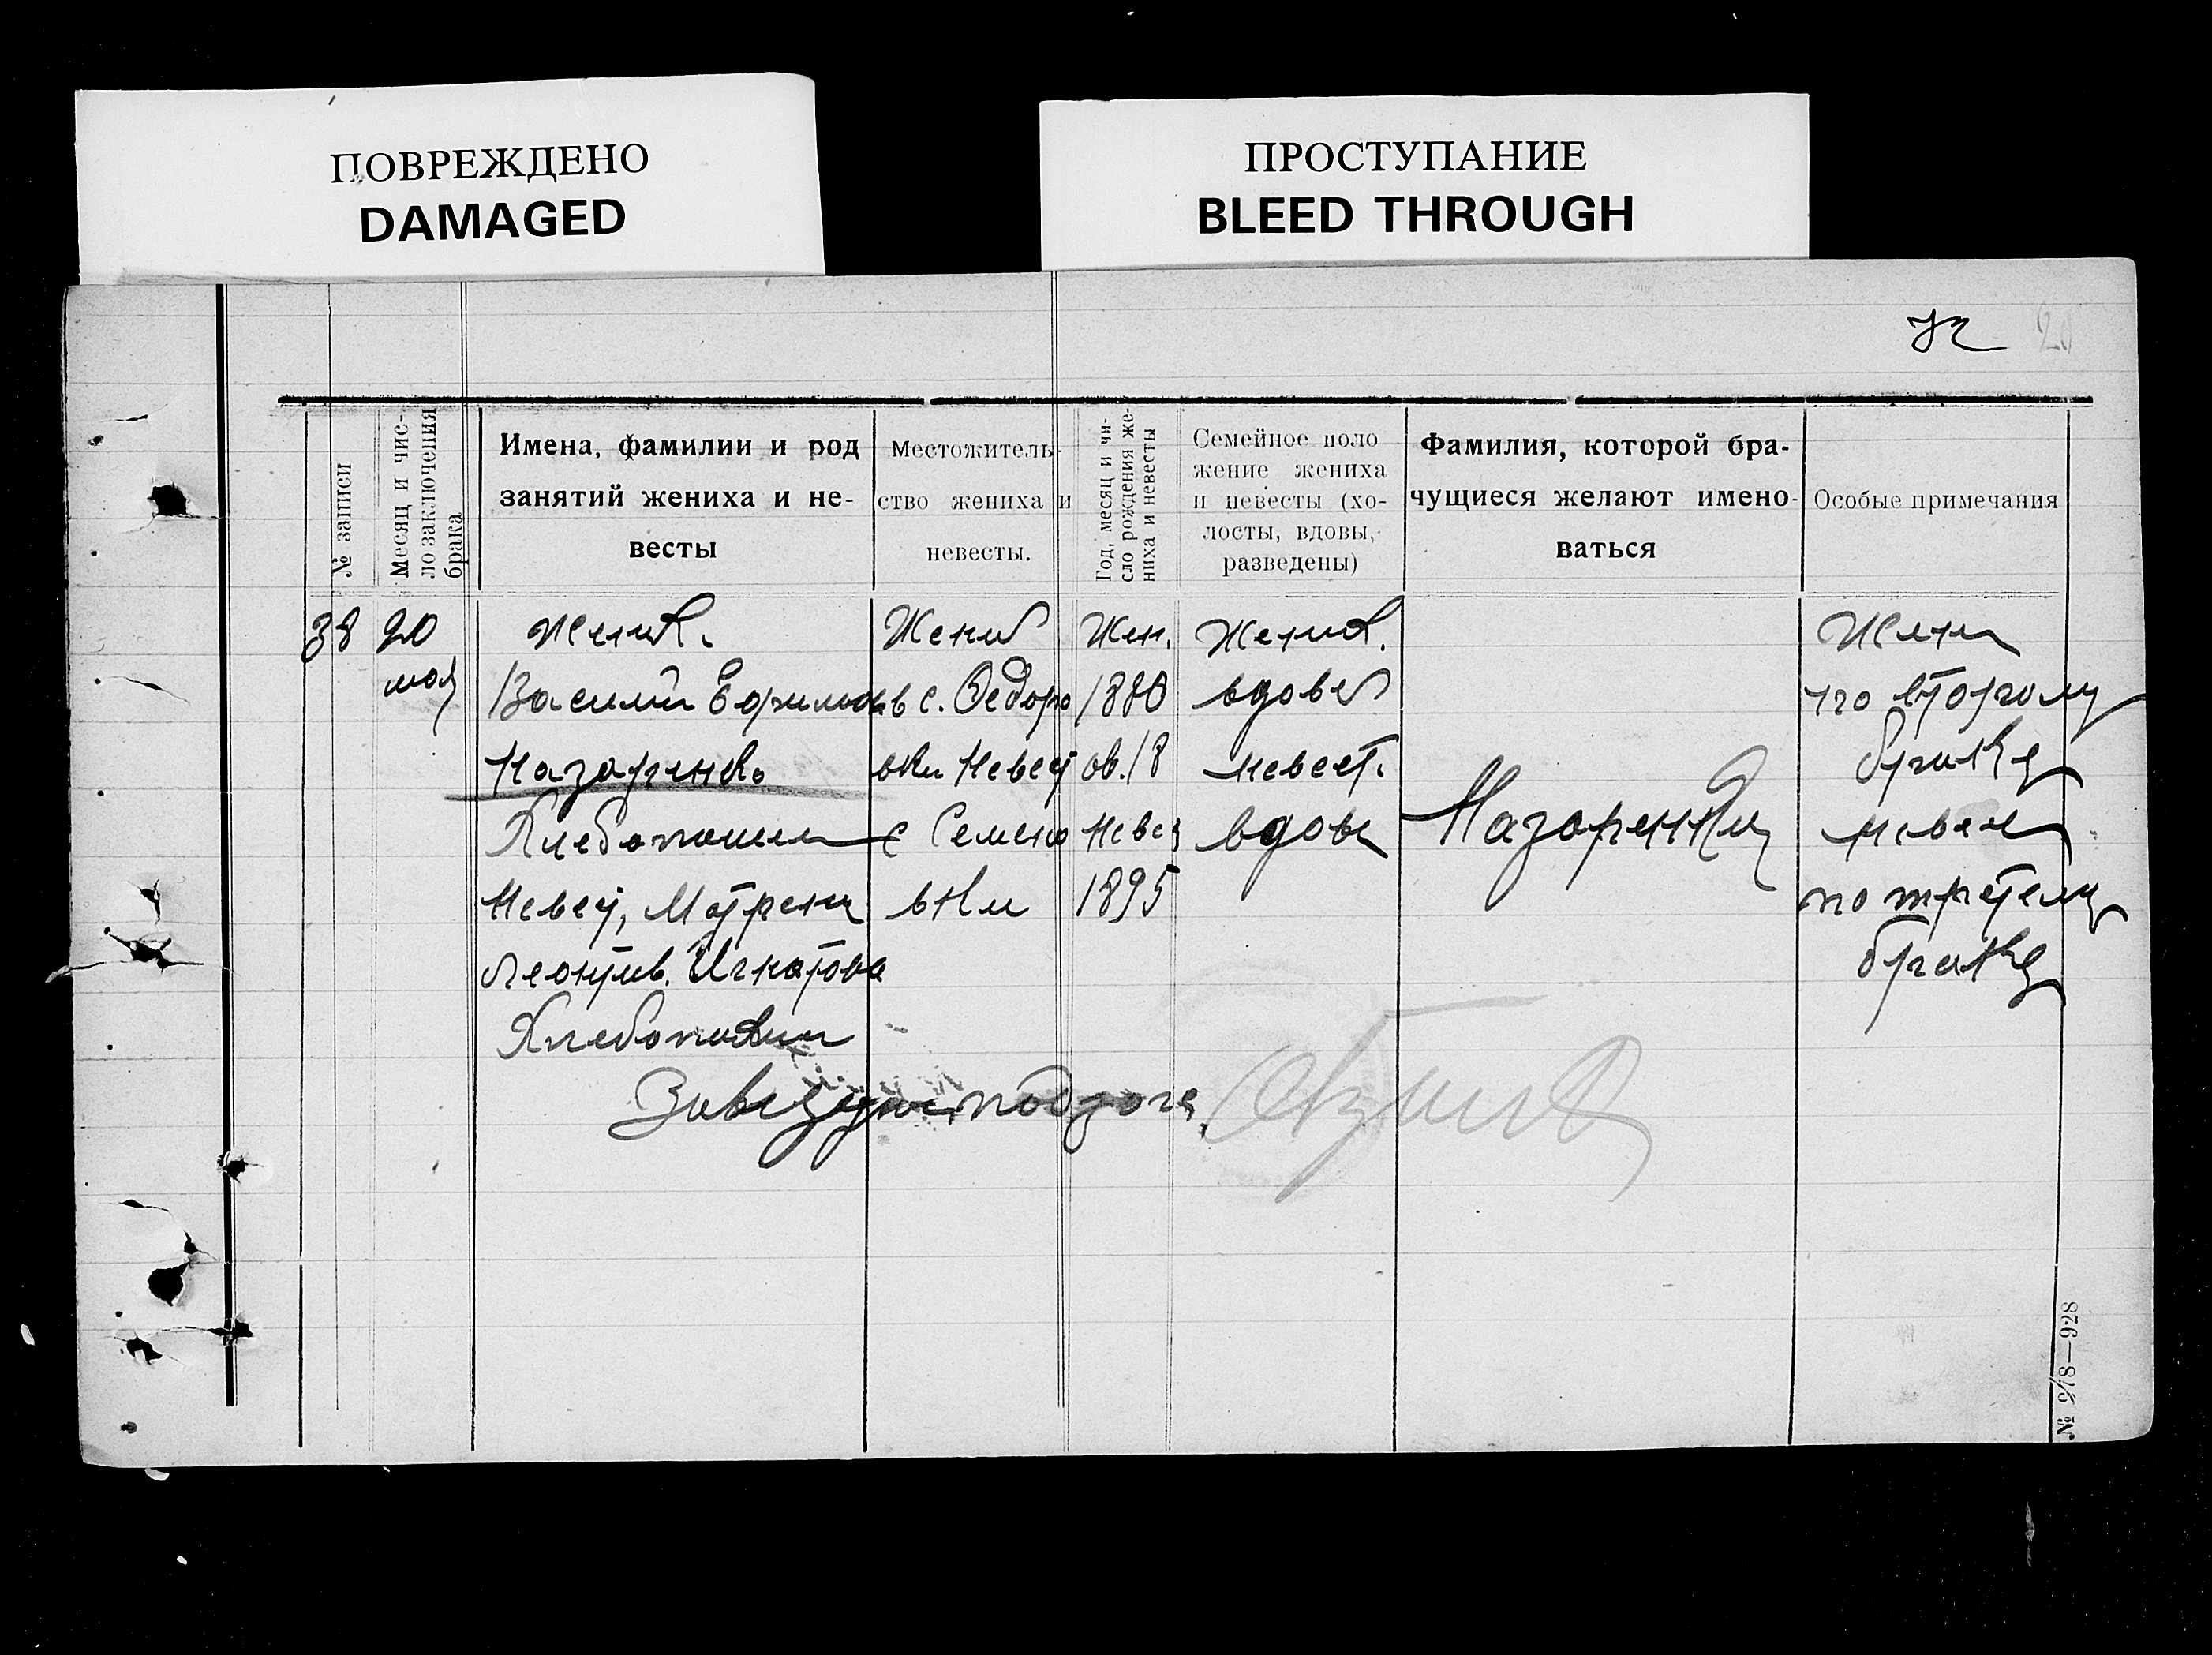 ПОВРЕЖДЕНО
DAMAGED
ПРОСТУПАНИЕ
BLEED THROUGH
№ записи
Месяц и чис-
ло заключения
брака
Имена, фамилии и род
занятий жениха и не-
весты
Местожитель-
ство жениха и
невесты.
Год, месяц и чи-
сло рождения же-
ниха и невесты
Семейное поло
жение жениха
и невесты (хо-
лосты, вдовы,
разведены)
Фамилия, которой бра-
чущиеся желают имено-
ваться
Особые примечания
38
20
мая
Жених.
Василий Ефимов
Назаренко
Хлебопашец
Невес, Матрена
Леонтив. Игнатова
Хлебопашец
Жених
в с. Федоро
вки Невес
с Семено
вки
Жен.
1880
ов. 18
Невес
1895
Жених.
вдовец
невест.
вдова
Назаренки
Жених
по второму
браку
невеста
по третему
браку
№ 918—928